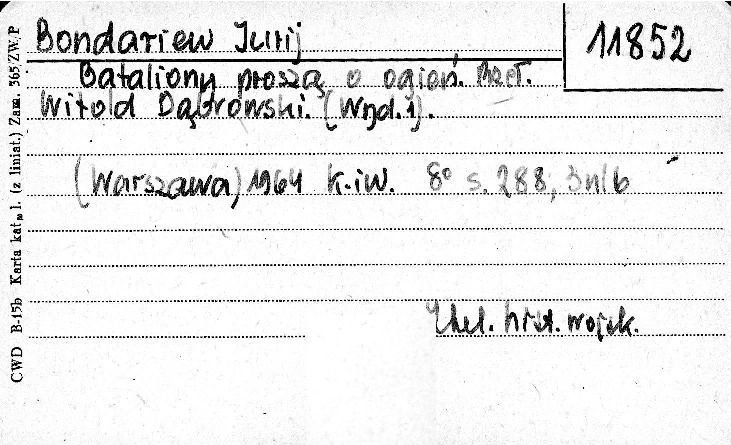 Bondariew Jurij
11852
Bataliony proszą o ogień. Przeł.
Witold Dąbrowski. (Wyd. 1).
(Warszawa) 1964 K. i W. 8° s. 288, 3 nlb
hist. wojsk.
CWD B-15b Karta kat. l. (z liniat.) Zam. 365/ZW/P